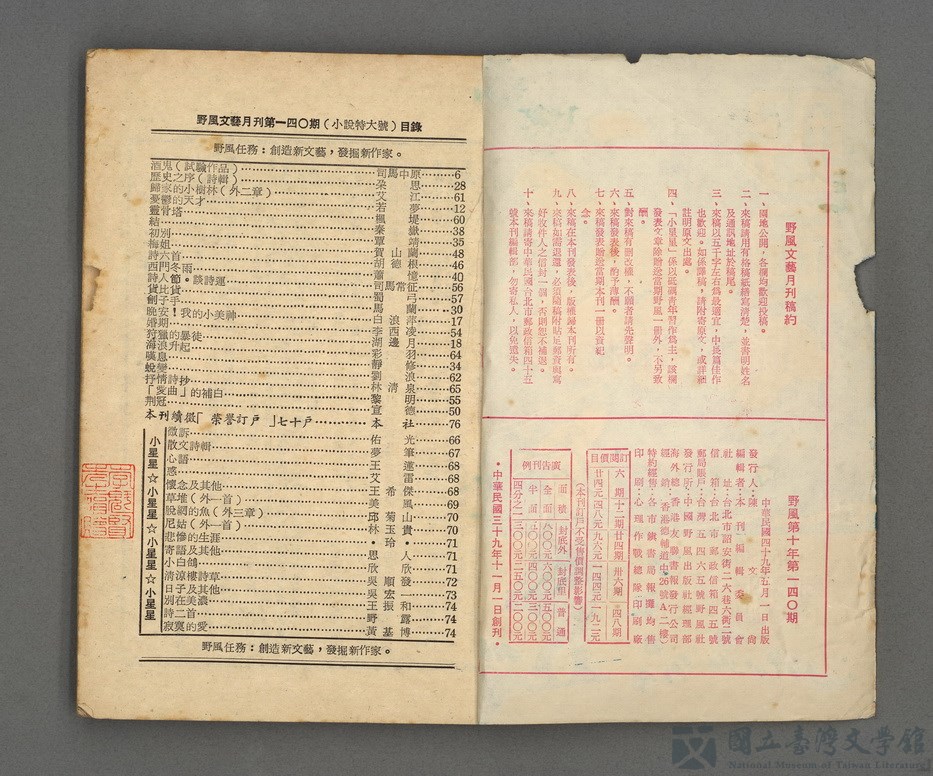 野風文藝月刊第一四〇期（小說特大號）目錄
野風任務：創造新文藝，發掘新作家。
酒鬼（試驗作品） 司馬中原 6
歷史之序（詩輯） 朵思 28
歸家的小樹林（外二章） 艾江 61
憂鬱的天才 若夢 12
靈骨塔 楓堤 60
結 秦嶽 38
初別 覃靖 35
梅姐 賀山蘭 48
詩六首 胡德根 46
西門冬雨 蕭憶 40
詩人節。談詩運 司馬常征 56
蜀弓 57
馬蘭 30
我的小美神
17
54
18
64
34
62
65
的補白 55
50
本刊續徵「榮譽訂戶」七十戶 本社 76
小星星☆小星星☆小星星☆小星星
微訴 佑光 66
散文詩輯 夢筆 67
心語 王蓮 68
惑 艾雷 68
懷念及其他 王希傑 68
草堆（外一首） 美風 69
脫網的魚（外三章） 邱菊山 70
尼姑（外一首） 林玉貴 70
悲慘的生涯 71
寄語及其他 思人 71
小白鴿 欣欣 71
清涼樓詩草 吳順發 72
日子在美濃 王宏一 73
別及 吳振和 74
詩二首 野露 74
寂寞的愛 黃基博 74
野風任務：創造新文藝，發掘新作家。
野風文藝月刊稿約
一、園地公開，各欄均歡迎投稿。
二、來稿請用有格稿紙繕寫清楚，並書明姓名
及通訊地址於稿尾。
三、來稿以五千字左右為最適宜，中長篇佳作
也歡迎。如係譯稿，請附寄原文，或詳細
註明原文出處。
四、「小星星」係以砥礪青年習作為主，該欄
發表文章除贈送當期野風一冊外，不另致
酬。
五、對來稿有刪改權，不願者請先聲明。
六、來稿發表後，酌予薄酬。
七、來稿發表贈送當期本刊一冊以資紀
念。
八、來稿在本刊發表後，版權歸本刊所有。
九、來稿如需退還，必須隨稿附貼足郵資與寫
好收件人之信封一個，否則恕不補退。
十、來稿請寄中華民國台北市郵政信箱四五
號本刊編輯部，勿寄私人，以免遺失。
野風第十年第一四〇期
中華民國四十九年五月一日出版
發行人：陳文尚
編輯者：本刊編輯委員會
社址：台北市詔安街二六巷六衖二號
信箱：台北市郵政信箱四五號
郵局賬戶：台灣五四六五號野風社
發行所：中國野風出版社經理部
海外總經銷：香港友聯書報發行公司
香港德輔道中26號A二樓
特約經售：各市鎮書局報攤均售
印刷：心理作戰總隊印刷廠
訂閱價目
六期 十二期 廿四期 卅六期 四八期
廿四元 四八元 九六元 一四四元 一九二元
（本刊訂戶不受售價調整影響）
廣告刊例
面積 封底外 封底裏 普通
全面 八〇〇元 六〇〇元 五〇〇元
半面 五〇〇元 四〇〇元 三〇〇元
四分之一 三〇〇元 二五〇元 二〇〇元
・中華民國三十九年十一月一日創刊・
國立臺灣文學館
National Museum of Taiwan Literature